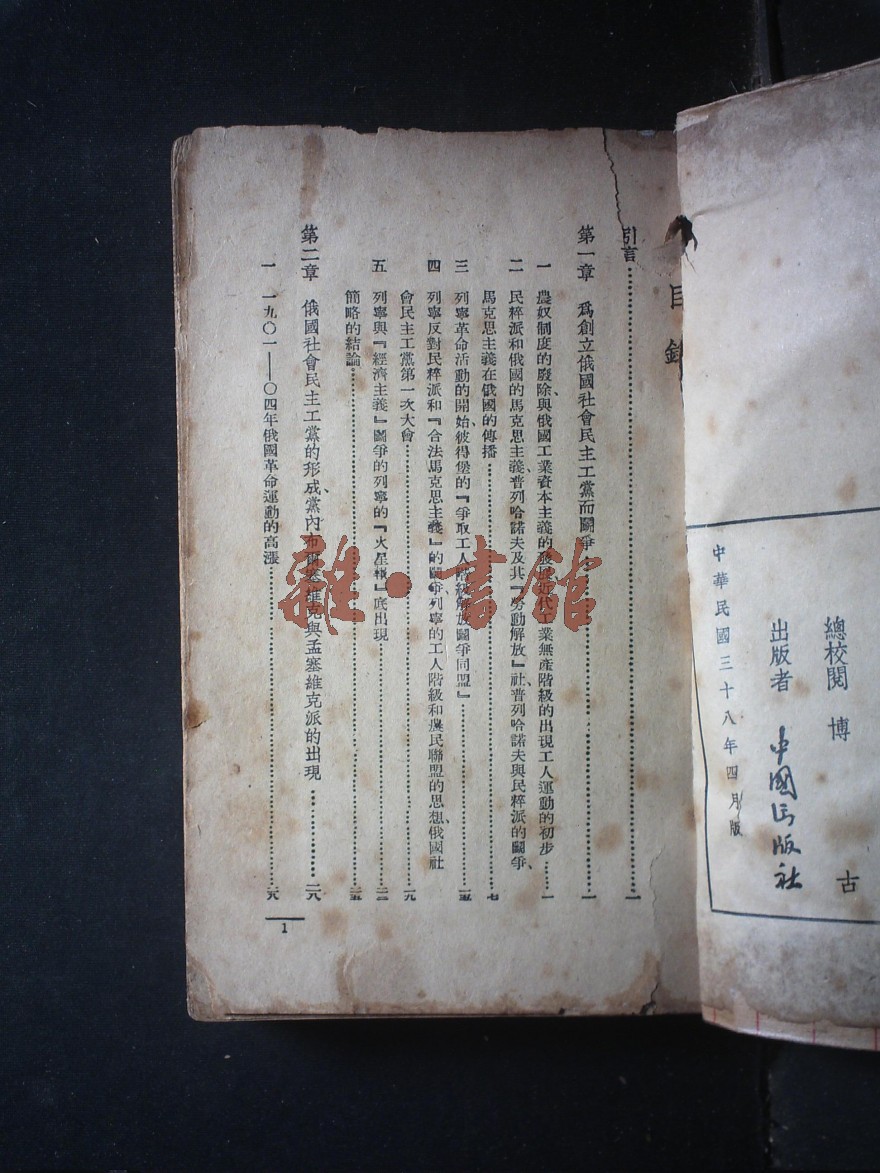 總校閱 博 古
出版者 中國出版社
中華民國三十八年四月版
目錄
引言……一
第一章 爲創立俄國社會民主工黨而鬭爭……一
一 農奴制度的廢除與俄國工業資本主義的發展、近代工業無產階級的出現、工人運動的初步……一
二 民粹派和俄國的馬克思主義、普列哈諾夫及其『勞動解放』社、普列哈諾夫與民粹派的鬭爭、
馬克思主義在俄國的傳播……七
三 列寧革命活動的開始、彼得堡的『爭取工人階級解放鬭爭同盟』……一五
四 列寧反對民粹派和『合法馬克思主義』的鬭爭、列寧的工人階級和農民聯盟的思想、俄國社
會民主工黨第一次大會……一九
五 列寧與『經濟主義』鬭爭的列寧的『火星報』底出現……二二
簡略的結論……二五
第二章 俄國社會民主工黨的形成、黨內布爾塞維克與孟塞維克派的出現……二八
一 一九〇一——〇四年俄國革命運動的高漲……二八
1
雜·書館